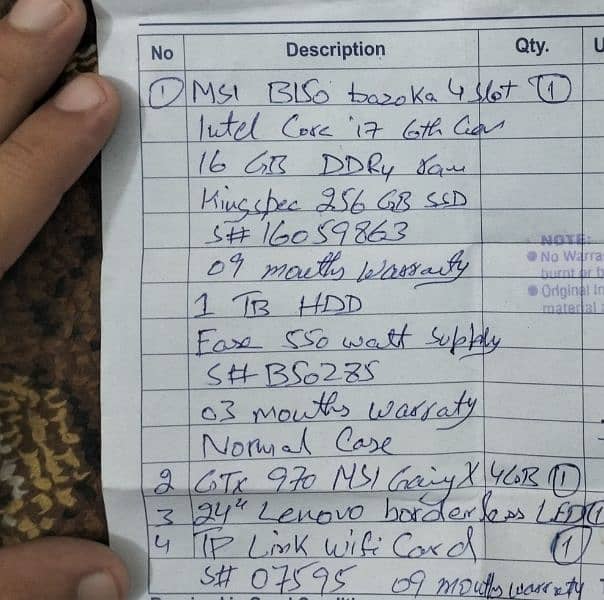 No Description Qty. U
1 MSI B150 bazoka 4 slot 1
Intel Core i7 6th Gen
16 GB DDR4 Ram
Kingspec 256 GB SSD
S# 16059863
NOTE:
09 months warraty
No Warra
burnt or b
Original In
material
1 TB HDD
Ease 550 watt supply
S# B50285
03 months warraty
Normal Case
2 GTX 970 MSI Gaing X 4GB 1
3 24" Lenovo borderless LED 1
4 TP Link Wifi Card 1
S# 07595 09 months warraty